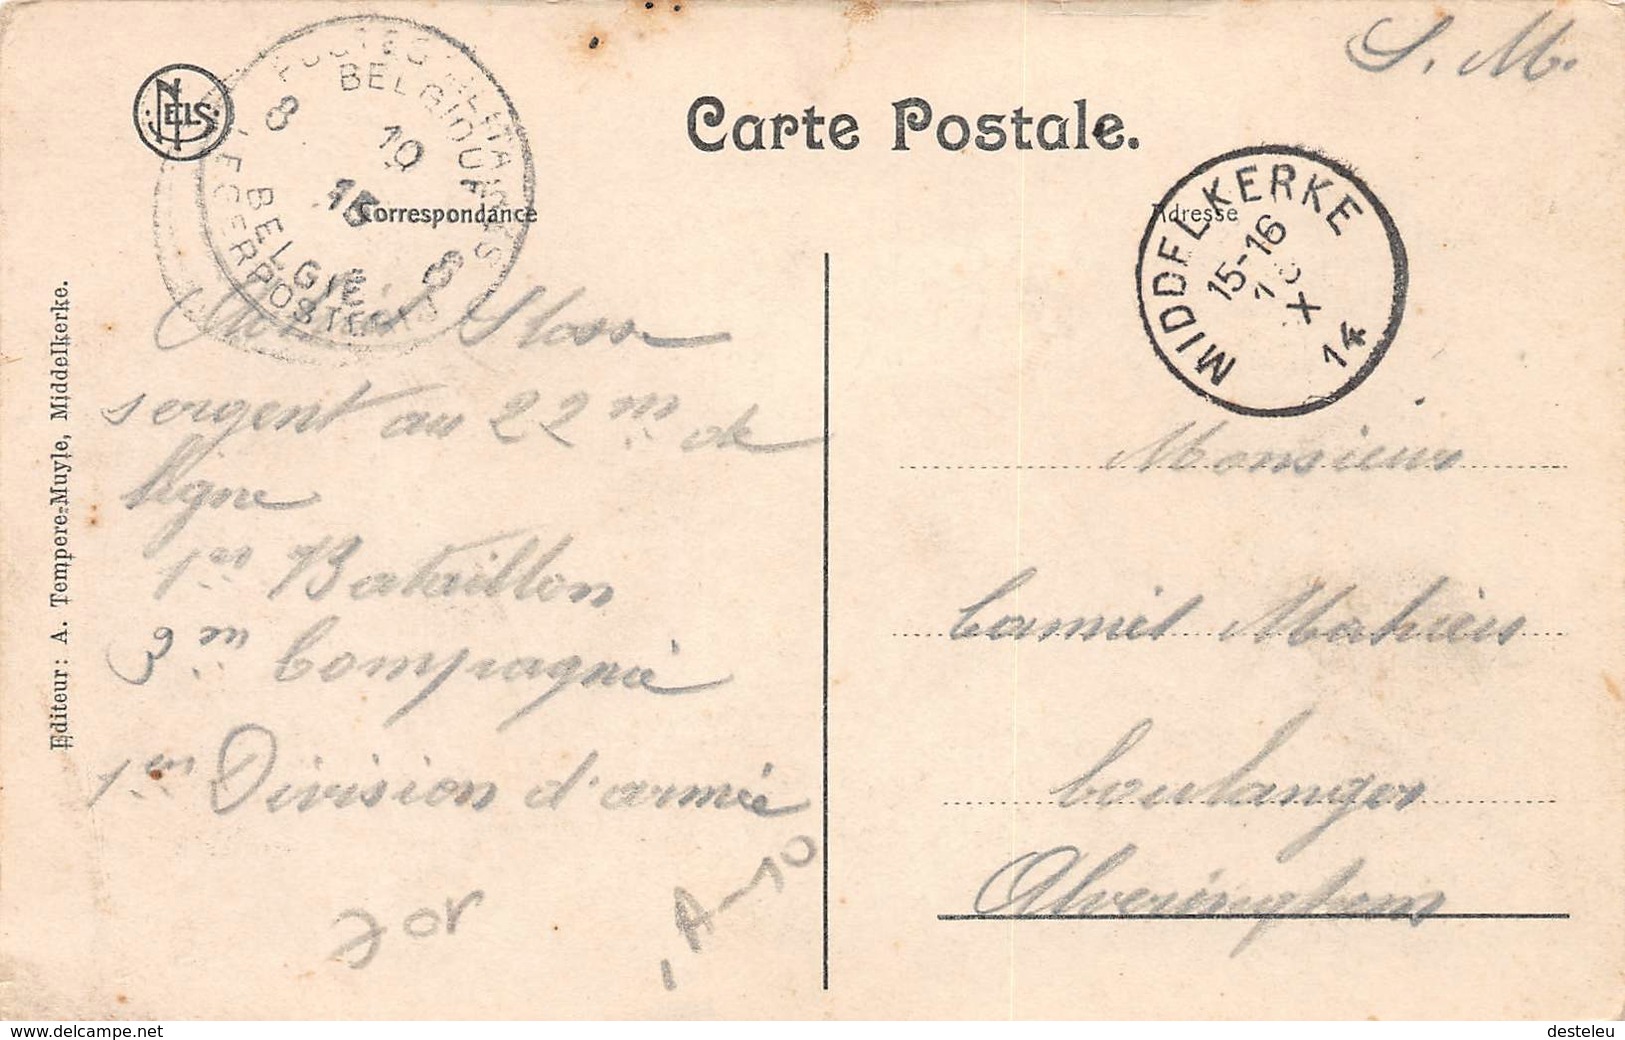 S. M.
NELS
POSTES MILITAIRES
BELGIQUE
8 10 8
15
BELGIË
LEGERPOSTERIJ
Carte Postale.
Correspondance
Adresse
MIDDELKERKE
15-16
X
14
Editeur: A. Tempere-Muyle, Middelkerke.
sergent au 22 m de
ligne
1er Bataillon
3 m Compagnie
1er Division d'armée
Monsieur
Camiel Mahieu
boulanger
Alveringhem
A-10
www.delcampe.net
desteleu